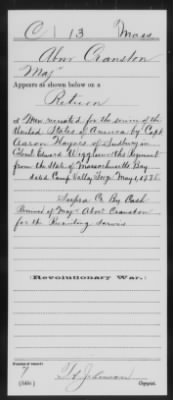 C | 13 Mass
Abner Cranston
Maj
Appears as shown below on a
Return
of Men recruited for the service of the
United States of America by Capt
Aaron Haynes of Sudbury in
Colonel Edward Wigglesworths Regiment
from the State of Massachusetts Bay
dated Camp Valley Forge May 1, 1778.
Supra Cr By Cash
of Maj Abner Cranston
for the Recruiting Service
Revolutionary War.
Number of record:
7
Copyist.